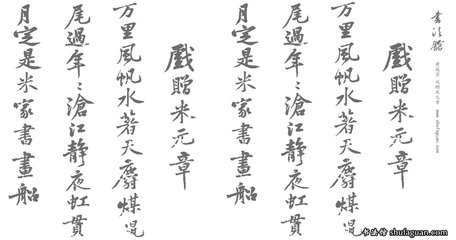 書法館
戲贈米元章
万里風帆水著天麝煤鼠
尾過年〻滄江靜夜虹貫
月定是米家書畫船
戲贈米元章
万里風帆水著天麝煤鼠
尾過年〻滄江靜夜虹貫
月定是米家書畫船
书法馆 shufaguan.com